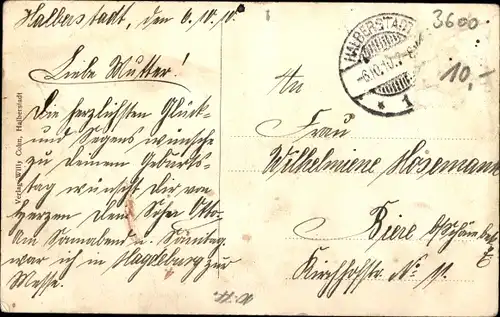 Halberstadt, den 6.10.10.
Liebe Mutter!
Die herzlichsten Glück-
und Segenswünsche
zu deinem Geburts-
tag wünscht Dir von
Herzen Dein Sohn Otto.
Am Sonnabend u. Sonntag
war ich in Magdeburg zur
Messe.
Verlag Willy Cohn, Halberstadt
HALBERSTADT
6.10.10.
* 1
3600
10,-
An
Frau
Wilhelmiene Hosemann
Biere b/Schönebeck
Kirchhofstr. No 11.